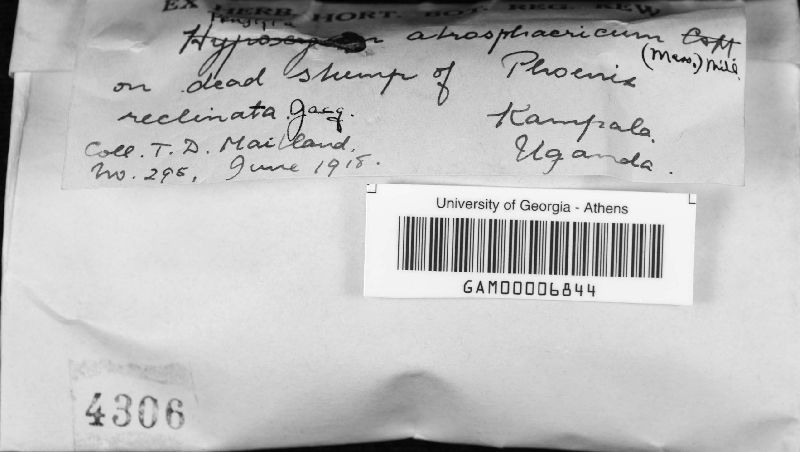 EX HERB. HORT. BOT. REG. KEW
Hypoxylon atrosphaericum
(Mass.) Mill.
on dead stump of Phoenix
reclinata Jacq. Kampala
Uganda.
Coll. T. D. Maitland.
No. 295, June 1918.
University of Georgia - Athens
GAM00006844
4306